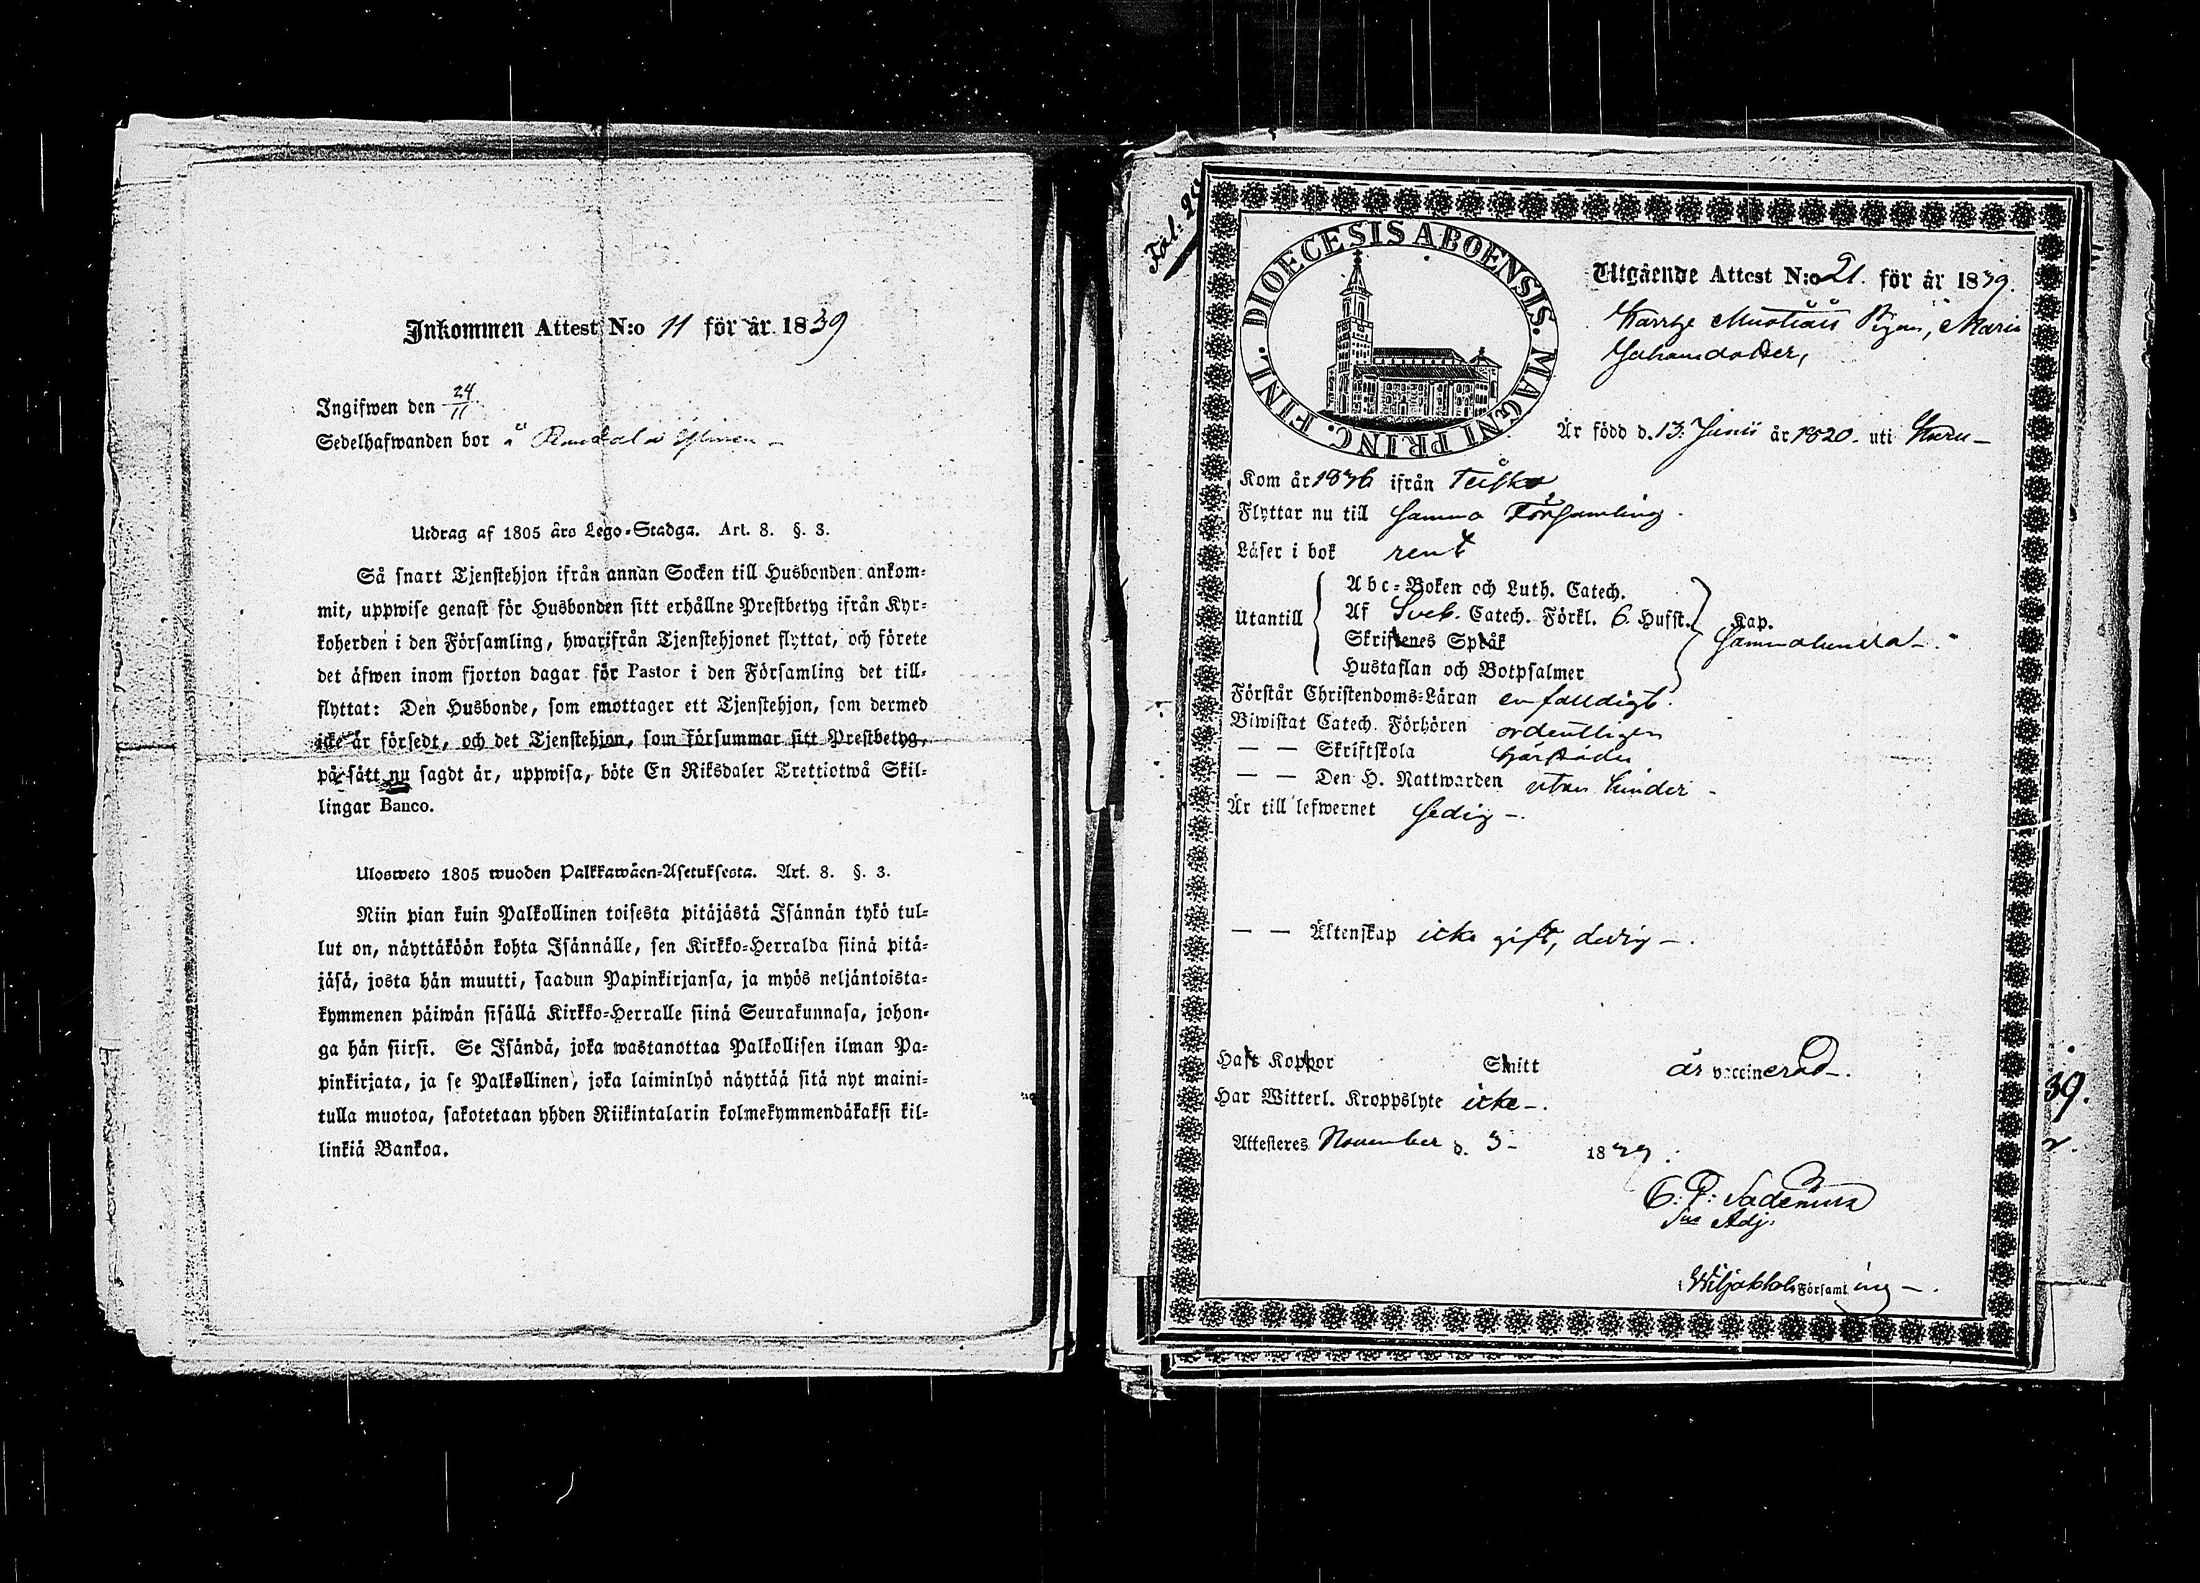 Inkommen Attest N:o 11 för år 1839
Ingifwen den 24/11
Sedelhafwanden bor å
Utdrag af 1805 års Lego-Stadga. Art. 8. §. 3.
Så snart Tjenstehjon ifrån annan Socken till Husbonden ankom-
mit, uppwise genast för Husbonden sitt erhållne Prestbetyg ifrån Kyr-
koherden i den Församling, hwarifrån Tjenstehjonet flyttat, och förete
det äfwen inom fjorton dagar för Pastor i den Församling det till-
flyttat: Den Husbonde, som emottager ett Tjenstehjon, som dermed
icke är försedt, och det Tjenstehjon, som försummar sitt Prestbetyg,
på sätt nu sagdt är, uppwisa, böte En Riksdaler Trettiotwå Skil-
lingar Banco.
Ulosweto 1805 wuoden Palkkawäen-Asetuksesta. Art. 8. §. 3.
Niin pian kuin Palkollinen toisesta pitäjästä Isännän tykö tul-
lut on, näyttäköön kohta Isännälle, sen Kirkko-Herralda siinä pitä-
jäsä, josta hän muutti, saadun Papinkirjansa, ja myös neljäntoista-
kymmenen päiwän sisällä Kirkko-Herralle siinä Seurakunnasa, johon-
ga hän siirsi. Se Isändä, joka wastanottaa Palkollisen ilman Pa-
pinkirjata, ja se Palkollinen, joka laiminlyö näyttää sitä nyt maini-
tulla muotoa, sakotetaan yhden Riikintalarin kolmekymmendäkaksi kil-
linkiä Bankoa.
Fol: 29
DIOECESIS ABOENSIS. MAGNI PRINC. FINL.
Utgående Attest N:o 21. för år 1839.
Pigan, Maria
Johansdotter,
Är född d. 13: Junii år 1820. uti Kuru
Kom år 1836 ifrån Teisko
Flyttar nu till samma Församling.
Läser i bok rent
Utantill
Abc-Boken och Luth. Catech.
Af Sveb. Catech. Förkl. 6 Hufst. Kap.
Skriftenes Språk
Hustaflan och Botpsalmer
Förstår Christendoms-Läran enfalldigt.
Biwistat Catech. Förhören ordentligen
— — Skriftskola
— — Den H. Nattwarden utan hinder
Är till lefwernet sedig
— — Äktenskap icke gift, ledig
Haft Koppor Smitt är vaccinerad
Har Witterl. Kroppslyte icke
Attesteres November d. 3 1839
Adj.
Församling
39.